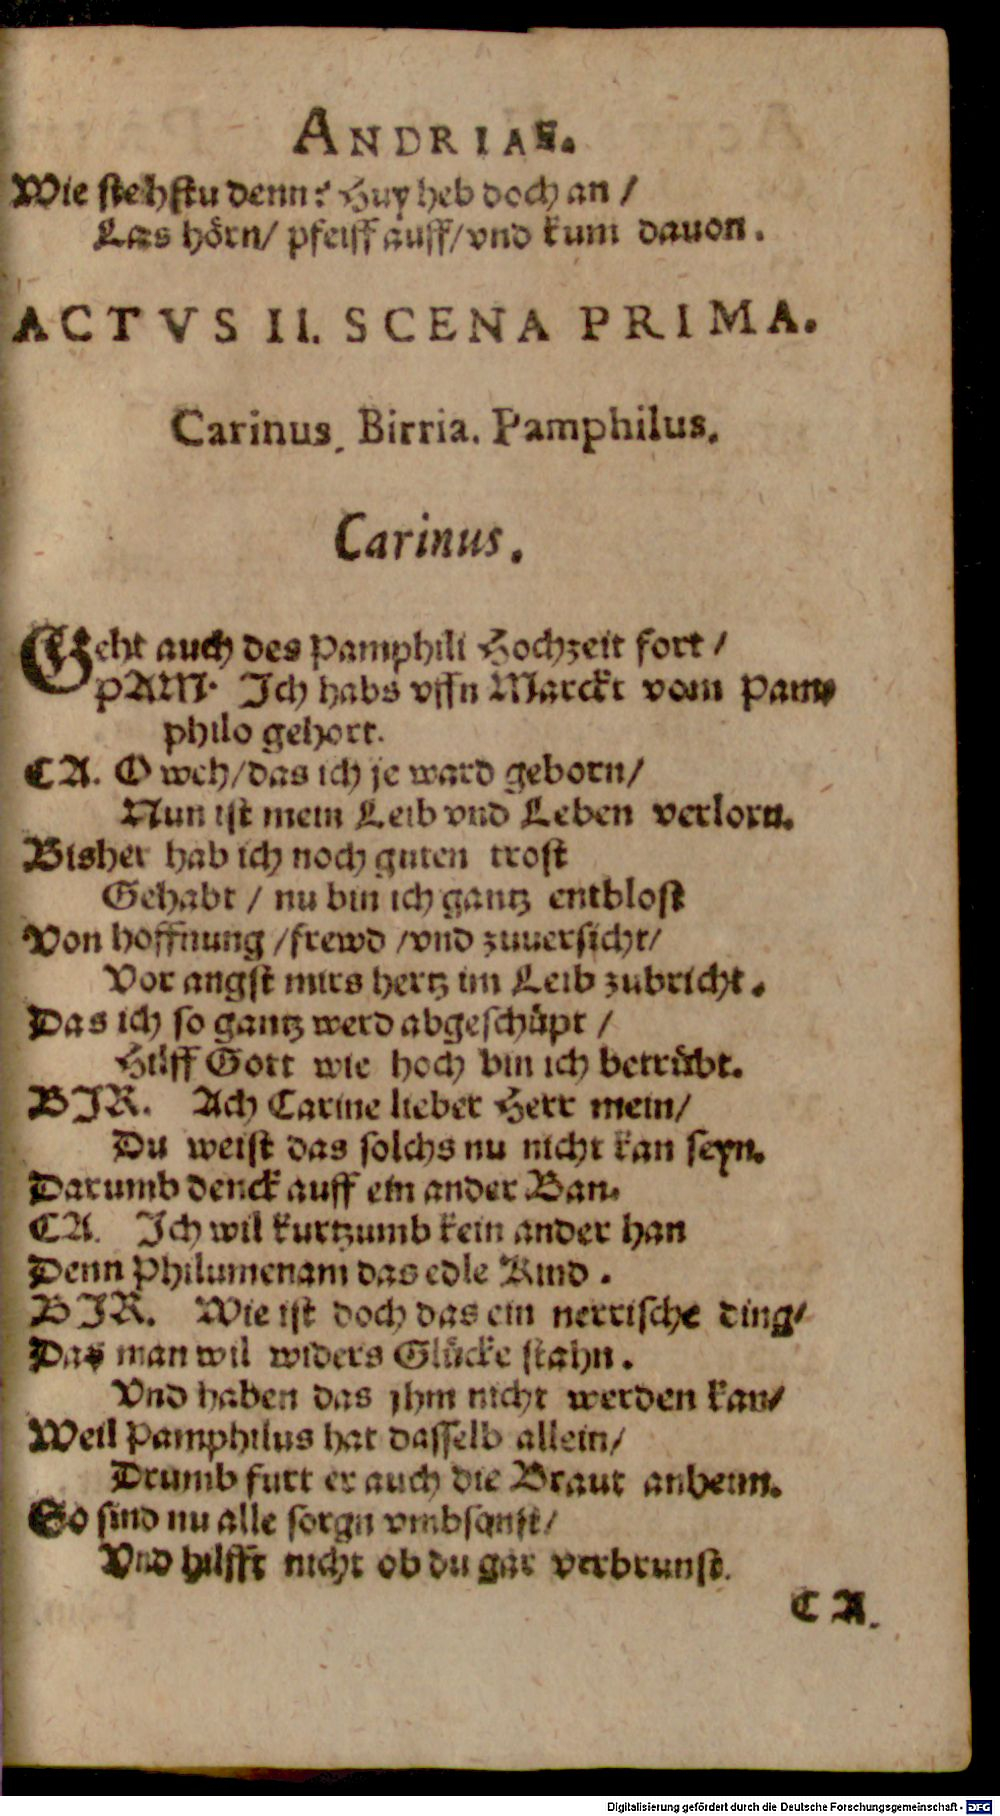 ANDRIAE.
Wie stehstu denn? Huy heb doch an /
Las hörn/ pfeiff auff/ vnd kum dauon.
ACTVS II. SCENA PRIMA.
Carinus. Birria. Pamphilus.
Carinus.
Geht auch des Pamphili Hochzeit fort /
PAM. Ich habs vffn Marckt vom Pam-
philo gehort.
CA. O weh/das ich je ward geborn/
Nun ist mein Leib vnd Leben verlorn.
Bisher hab ich noch guten trost
Gehabt / nu bin ich gantz entblost
Von hoffnung /frewd /vnd zuuersicht/
Vor angst mirs hertz im Leib zubricht.
Das ich so gantz werd abgeschüpt /
Hilff Gott wie hoch bin ich betrübt.
BIR. Ach Carine lieber Herr mein/
Du weist das solchs nu nicht kan seyn.
Darumb denck auff ein ander Ban.
CA. Ich wil kurtzumb kein ander han
Denn Philumenam das edle Kind .
BIR. Wie ist doch das ein nerrische ding/
Das man wil widers Glücke stahn.
Vnd haben das jhm nicht werden kan/
Weil Pamphilus hat dasselb allein/
Drumb furt er auch die Braut anheim.
So sind nu alle sorgn vmbsonst/
Vnd hilfft nicht ob du gar verbrunst.
CA.
Digitalisierung gefördert durch die Deutsche Forschungsgemeinschaft - DFG